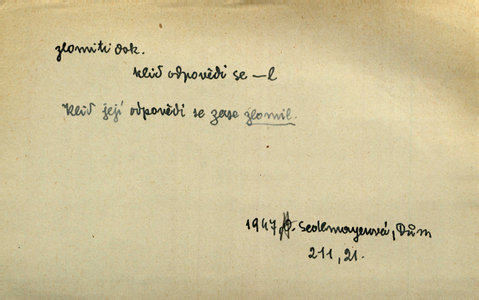 zlomiti dok.
klid odpovědi se —l
Klid její odpovědi se zase zlomil.
1947 Sedlmayerová, Dům
211, 21.